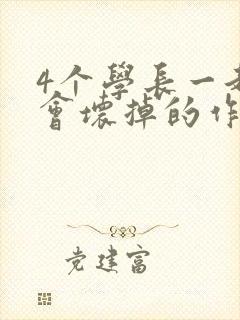 4个學長一起
會壞掉的作
党建富